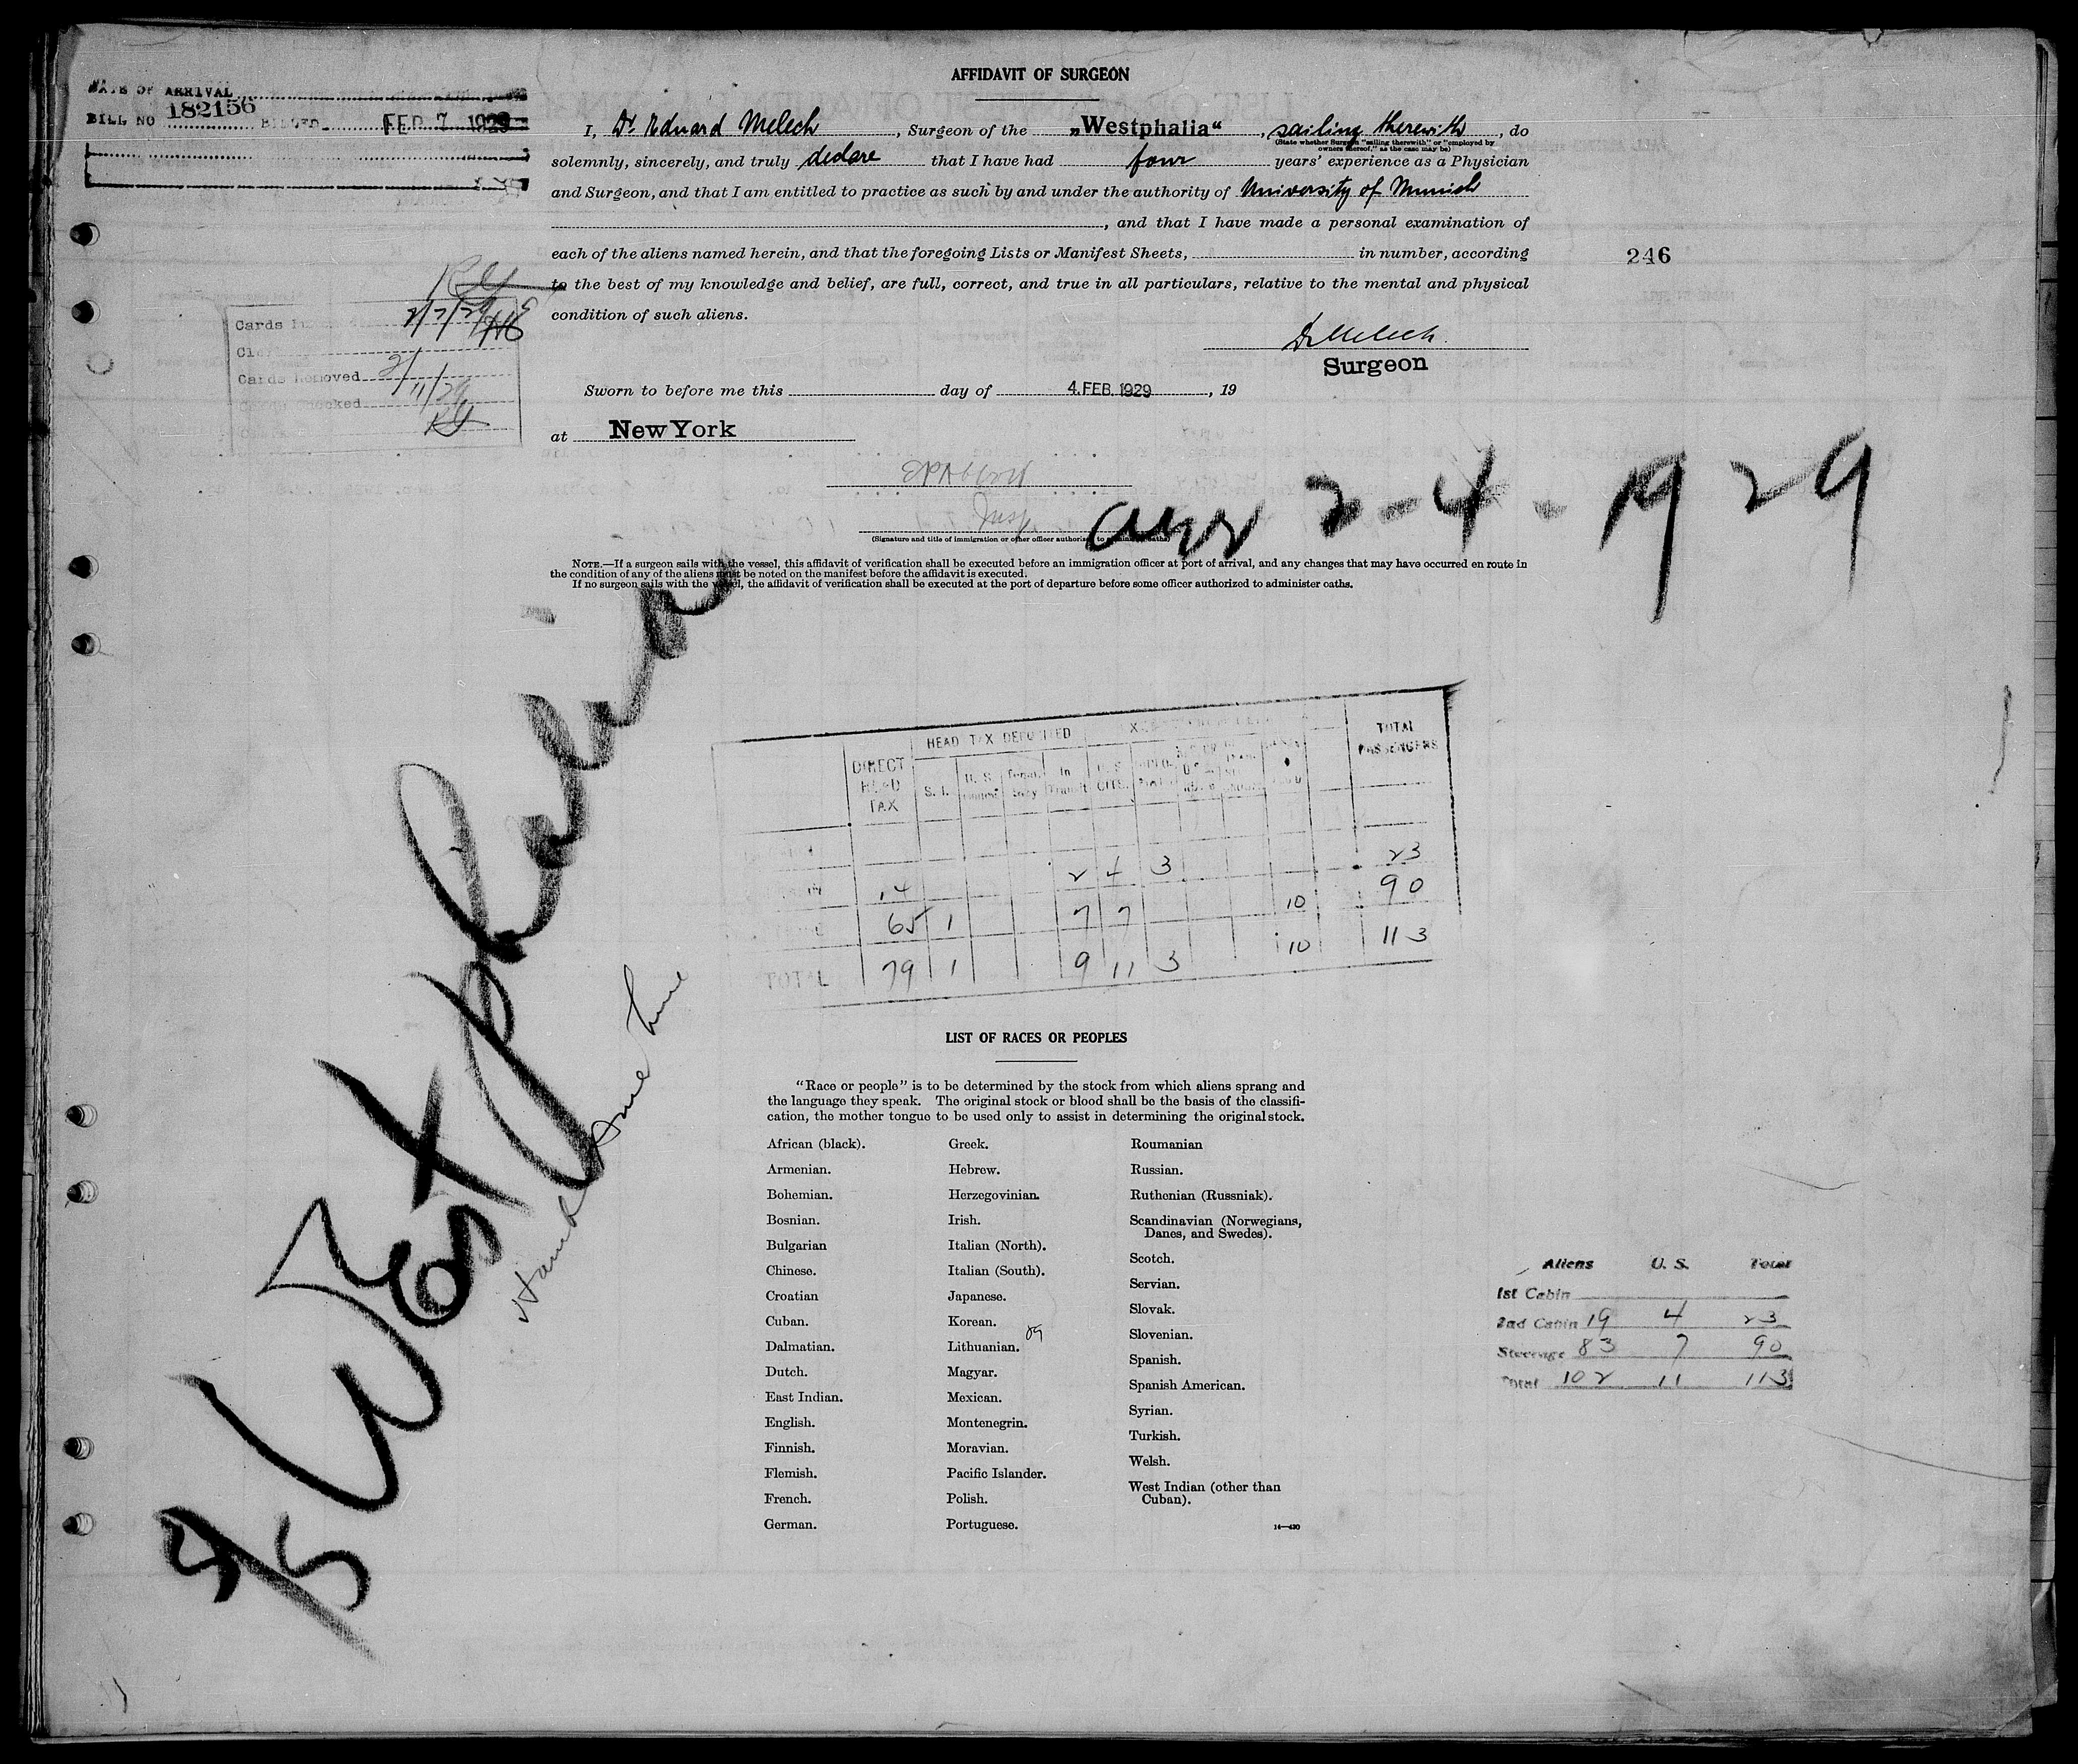 AFFIDAVIT OF SURGEON
DATE OF ARRIVAL
BILL NO 182156 BILLED FEB 7 1929
I, Dr Eduard Melech, Surgeon of the „Westphalia“, sailing therewith, do
(State whether Surgeon "sailing therewith" or "employed by
owners thereof," as the case may be)
solemnly, sincerely, and truly declare that I have had four years' experience as a Physician
and Surgeon, and that I am entitled to practice as such by and under the authority of University of Munich
, and that I have made a personal examination of
each of the aliens named herein, and that the foregoing Lists or Manifest Sheets, in number, according
246
to the best of my knowledge and belief, are full, correct, and true in all particulars, relative to the mental and physical
condition of such aliens.
Cards
2/7/29
Cards Removed 2/
11/29
Dr Melech.
Surgeon
Sworn to before me this day of 4.FEB.1929, 19
at New York
Insp.
(Signature and title of immigration or other officer authorized to administer oaths)
arr 2-4-1929
NOTE.—If a surgeon sails with the vessel, this affidavit of verification shall be executed before an immigration officer at port of arrival, and any changes that may have occurred en route in
the condition of any of the aliens must be noted on the manifest before the affidavit is executed.
If no surgeon sails with the vessel, the affidavit of verification shall be executed at the port of departure before some officer authorized to administer oaths.
S/S Westphalia
Hamb Ame Line
HEAD TAX DEPOSITED
DIRECT HEAD TAX
S. I.
In Transit
U. S. CITS.
TOTAL PASSENGERS
14 2 4 3 23
65 1 7 7 10 90
TOTAL 79 1 9 11 3 10 113
LIST OF RACES OR PEOPLES
"Race or people" is to be determined by the stock from which aliens sprang and
the language they speak. The original stock or blood shall be the basis of the classifi-
cation, the mother tongue to be used only to assist in determining the original stock.
African (black).
Armenian.
Bohemian.
Bosnian.
Bulgarian
Chinese.
Croatian
Cuban.
Dalmatian.
Dutch.
East Indian.
English.
Finnish.
Flemish.
French.
German.
Greek.
Hebrew.
Herzegovinian.
Irish.
Italian (North).
Italian (South).
Japanese.
Korean.
Lithuanian.
Magyar.
Mexican.
Montenegrin.
Moravian.
Pacific Islander.
Polish.
Portuguese.
Roumanian
Russian.
Ruthenian (Russniak).
Scandinavian (Norwegians,
Danes, and Swedes).
Scotch.
Servian.
Slovak.
Slovenian.
Spanish.
Spanish American.
Syrian.
Turkish.
Welsh.
West Indian (other than
Cuban).
14—430
Aliens U. S. Total
1st Cabin
2nd Cabin 19 4 23
Steerage 83 7 90
Total 102 11 113